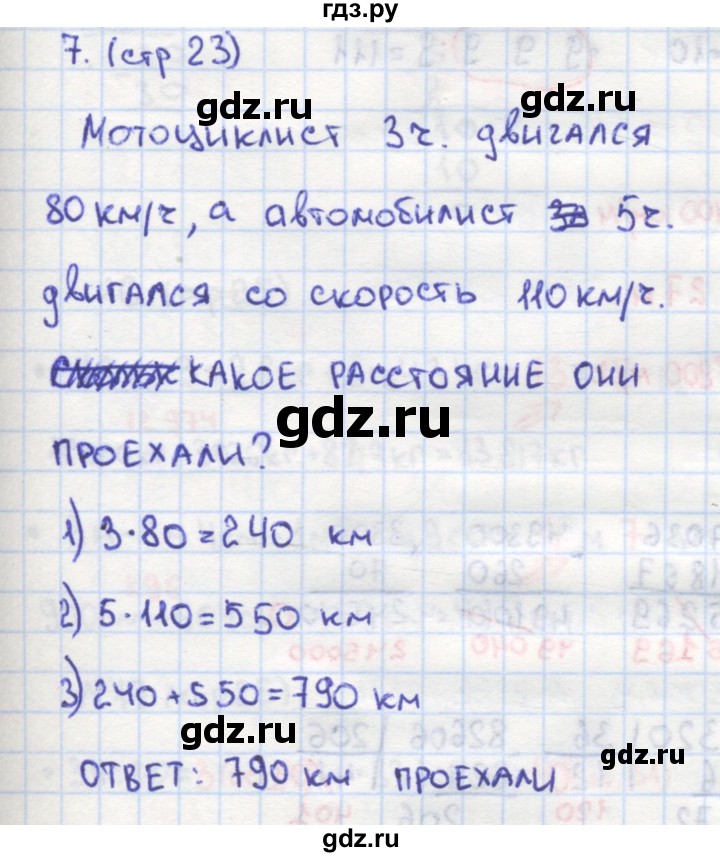 гдз.ру
7. (стр 23)
gdz.ru
Мотоциклист 3 ч. двигался
80 км/ч, а автомобилист 5 ч.
gdz.ru
двигался со скорость 110 км/ч.
КАКОЕ РАССТОЯНИЕ ОНИ
gdz.ru
ПРОЕХАЛИ?
1) 3·80=240 км
gdz.ru
2) 5·110=550 км
3) 240+550=790 км
gdz.ru
gdz.ru
ОТВЕТ: 790 км ПРОЕХАЛИ
gdz.ru